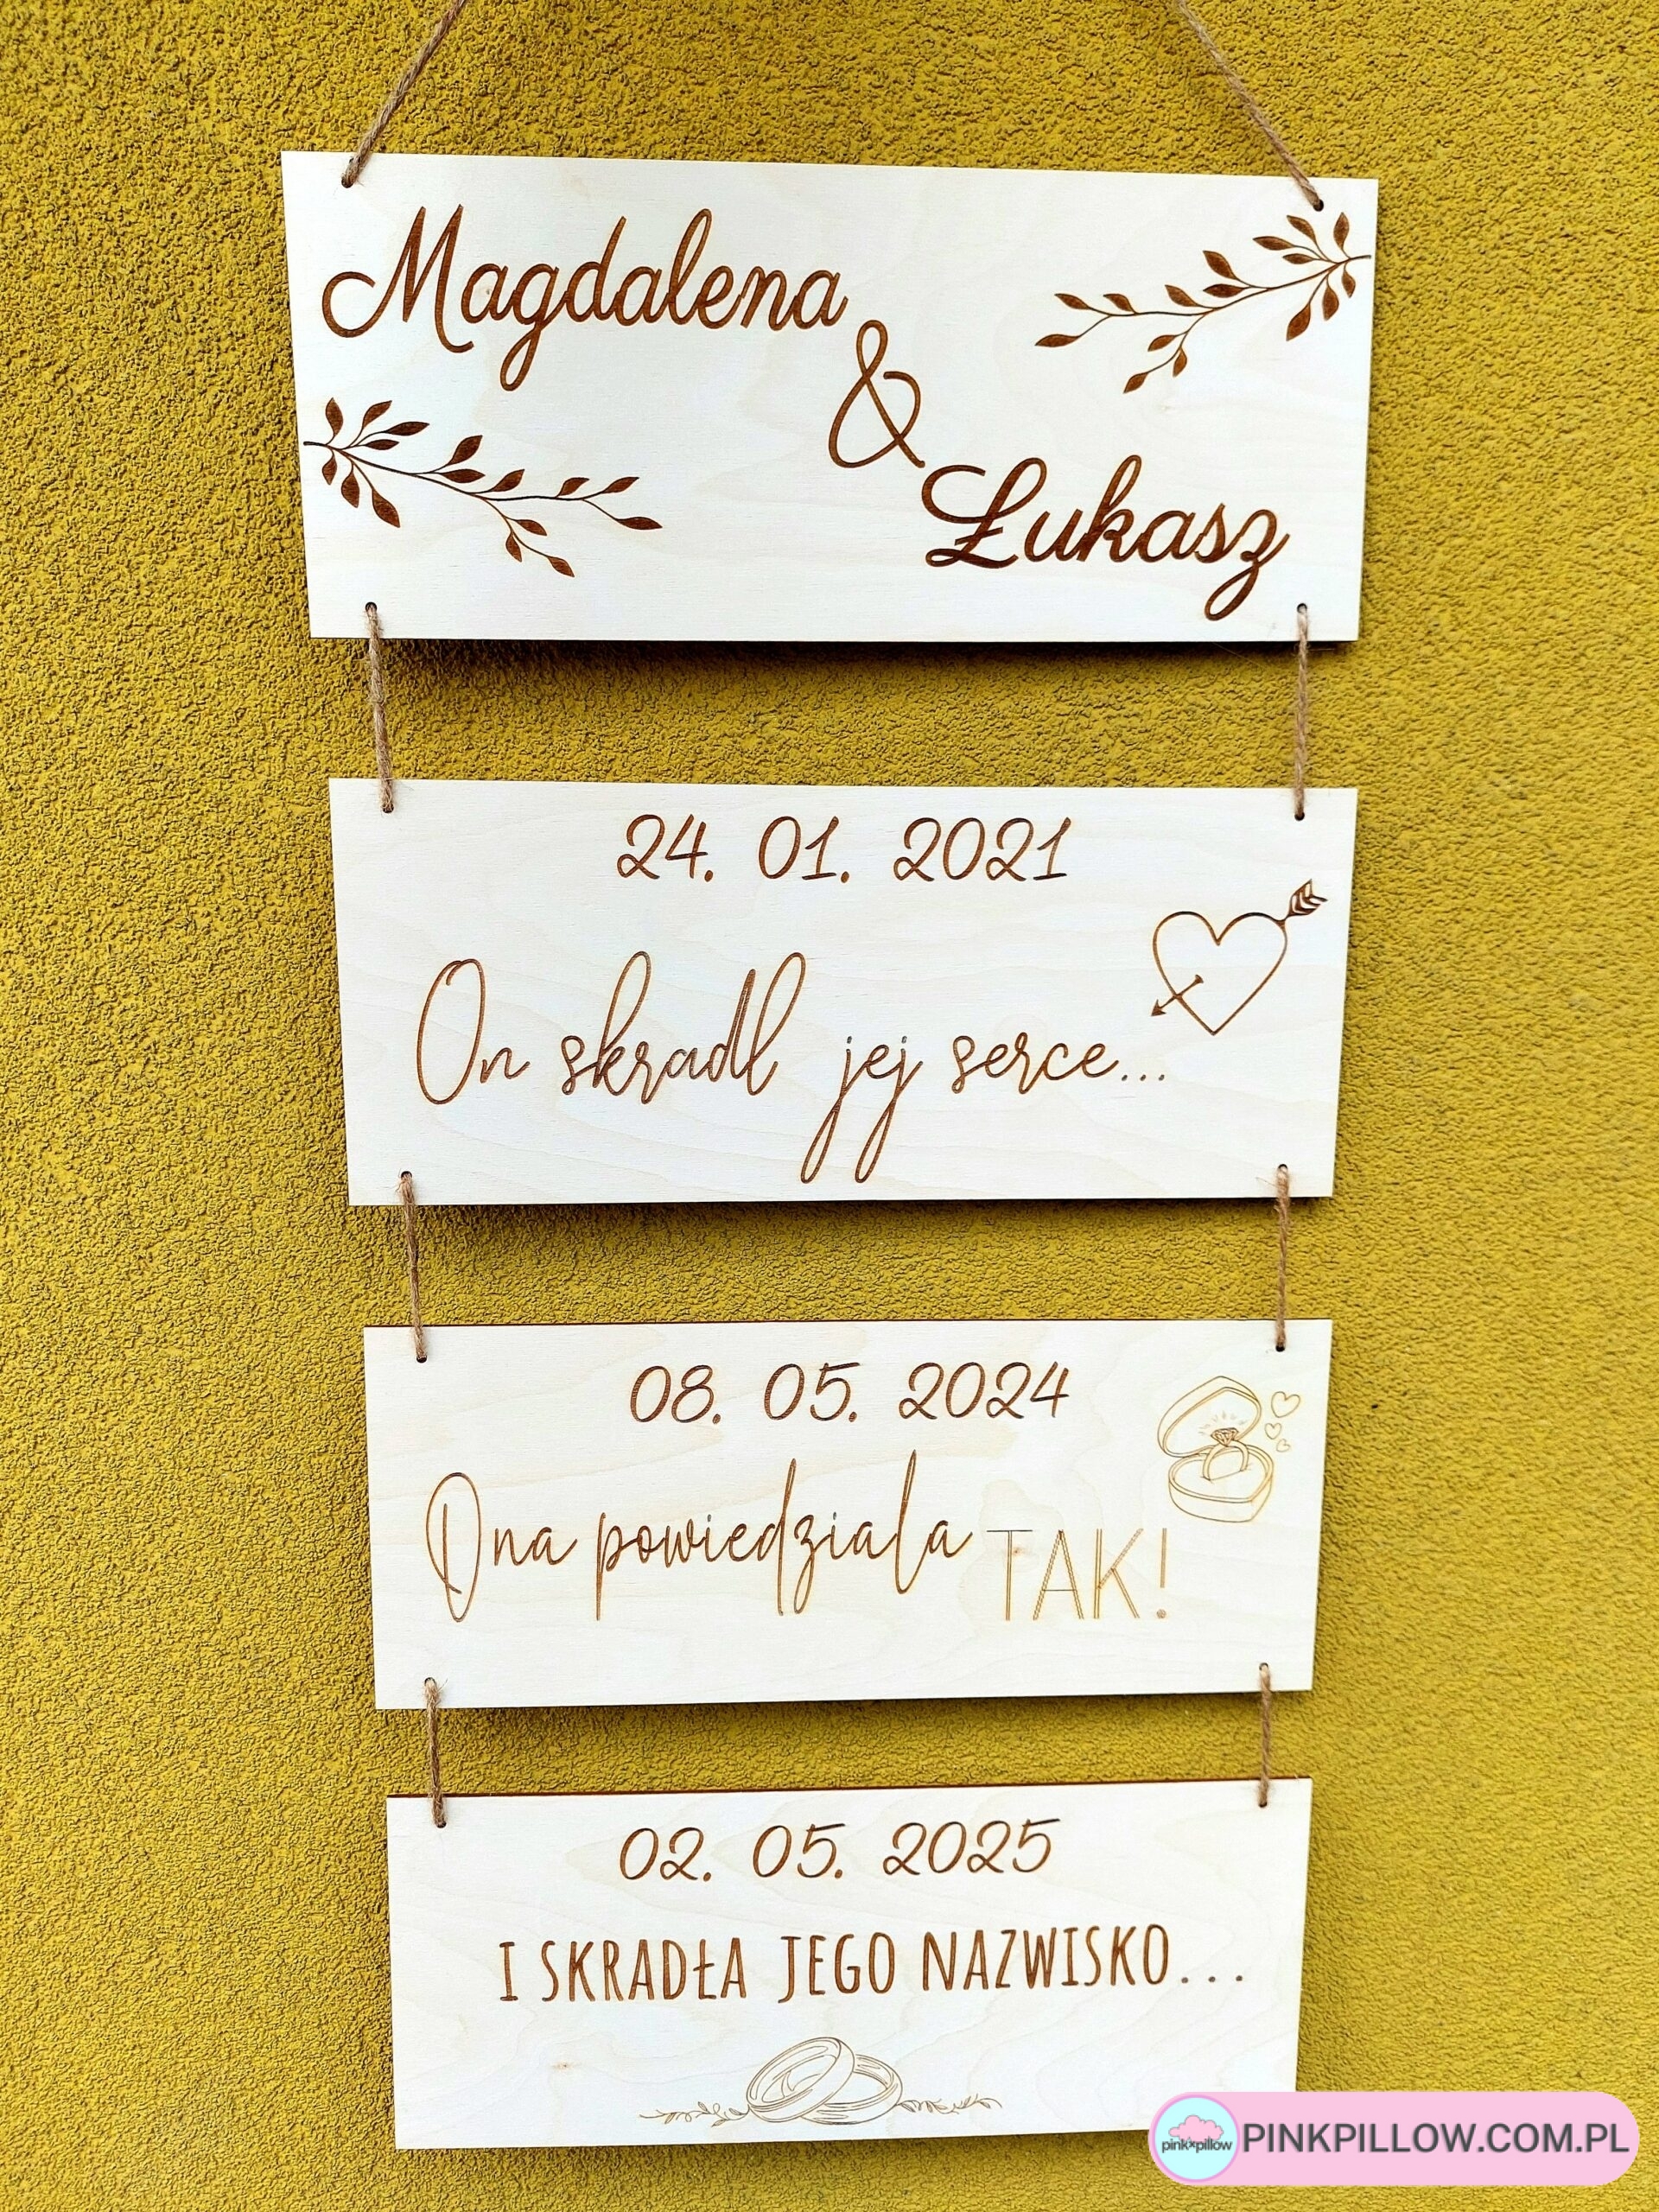 Magdalena
&
Łukasz
24. 01. 2021
On skradl jej serce...
08. 05. 2024
Ona powiedziala TAK!
02. 05. 2025
I SKRADŁA JEGO NAZWISKO...
pink pillow
PINKPILLOW.COM.PL